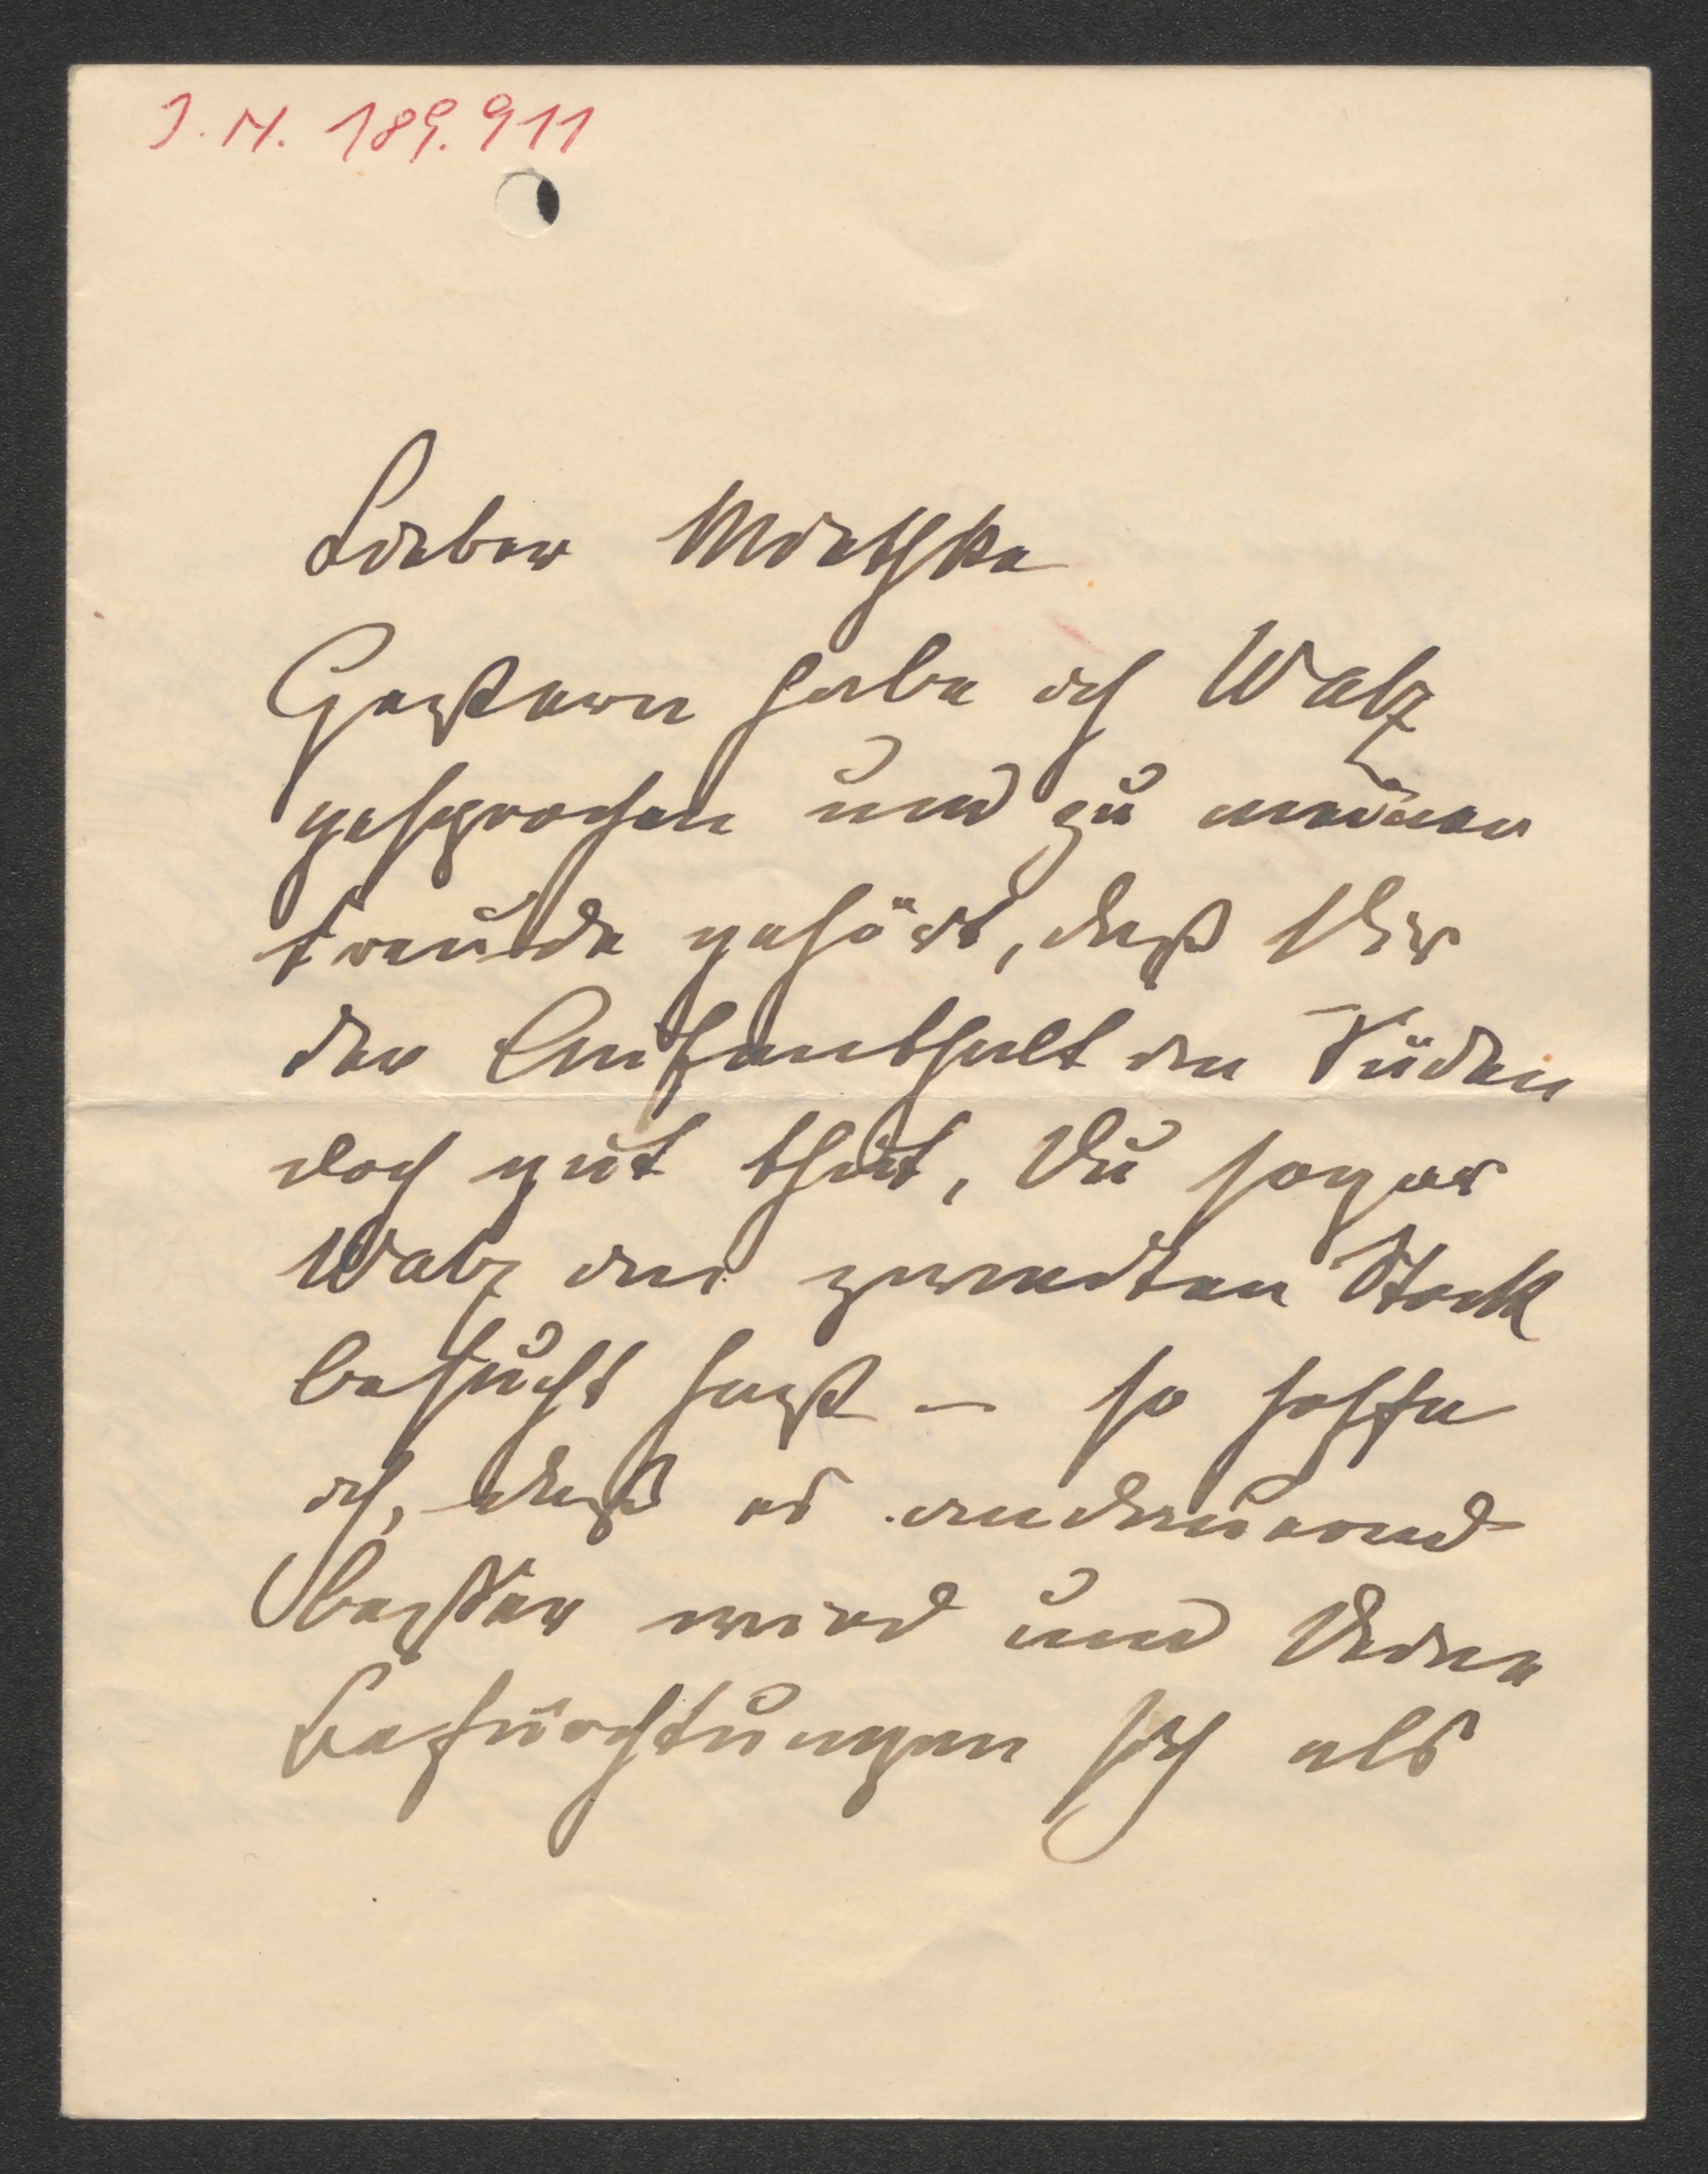 J. N. 189.911
Lieber Miethke
Gestern habe ich Walz
gesprochen und zu meiner
Freude gehört, daß Dir
der Aufenthalt im Süden
doch gut thut, Du sogar
Walz im zweiten Stock
besucht hast – so hoffe
ich, daß es andauernd
besser wird und Deine
Befürchtungen sich als